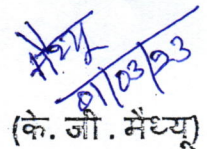 मैथ्यू
01/03/23
(के. जी. मैथ्यू)